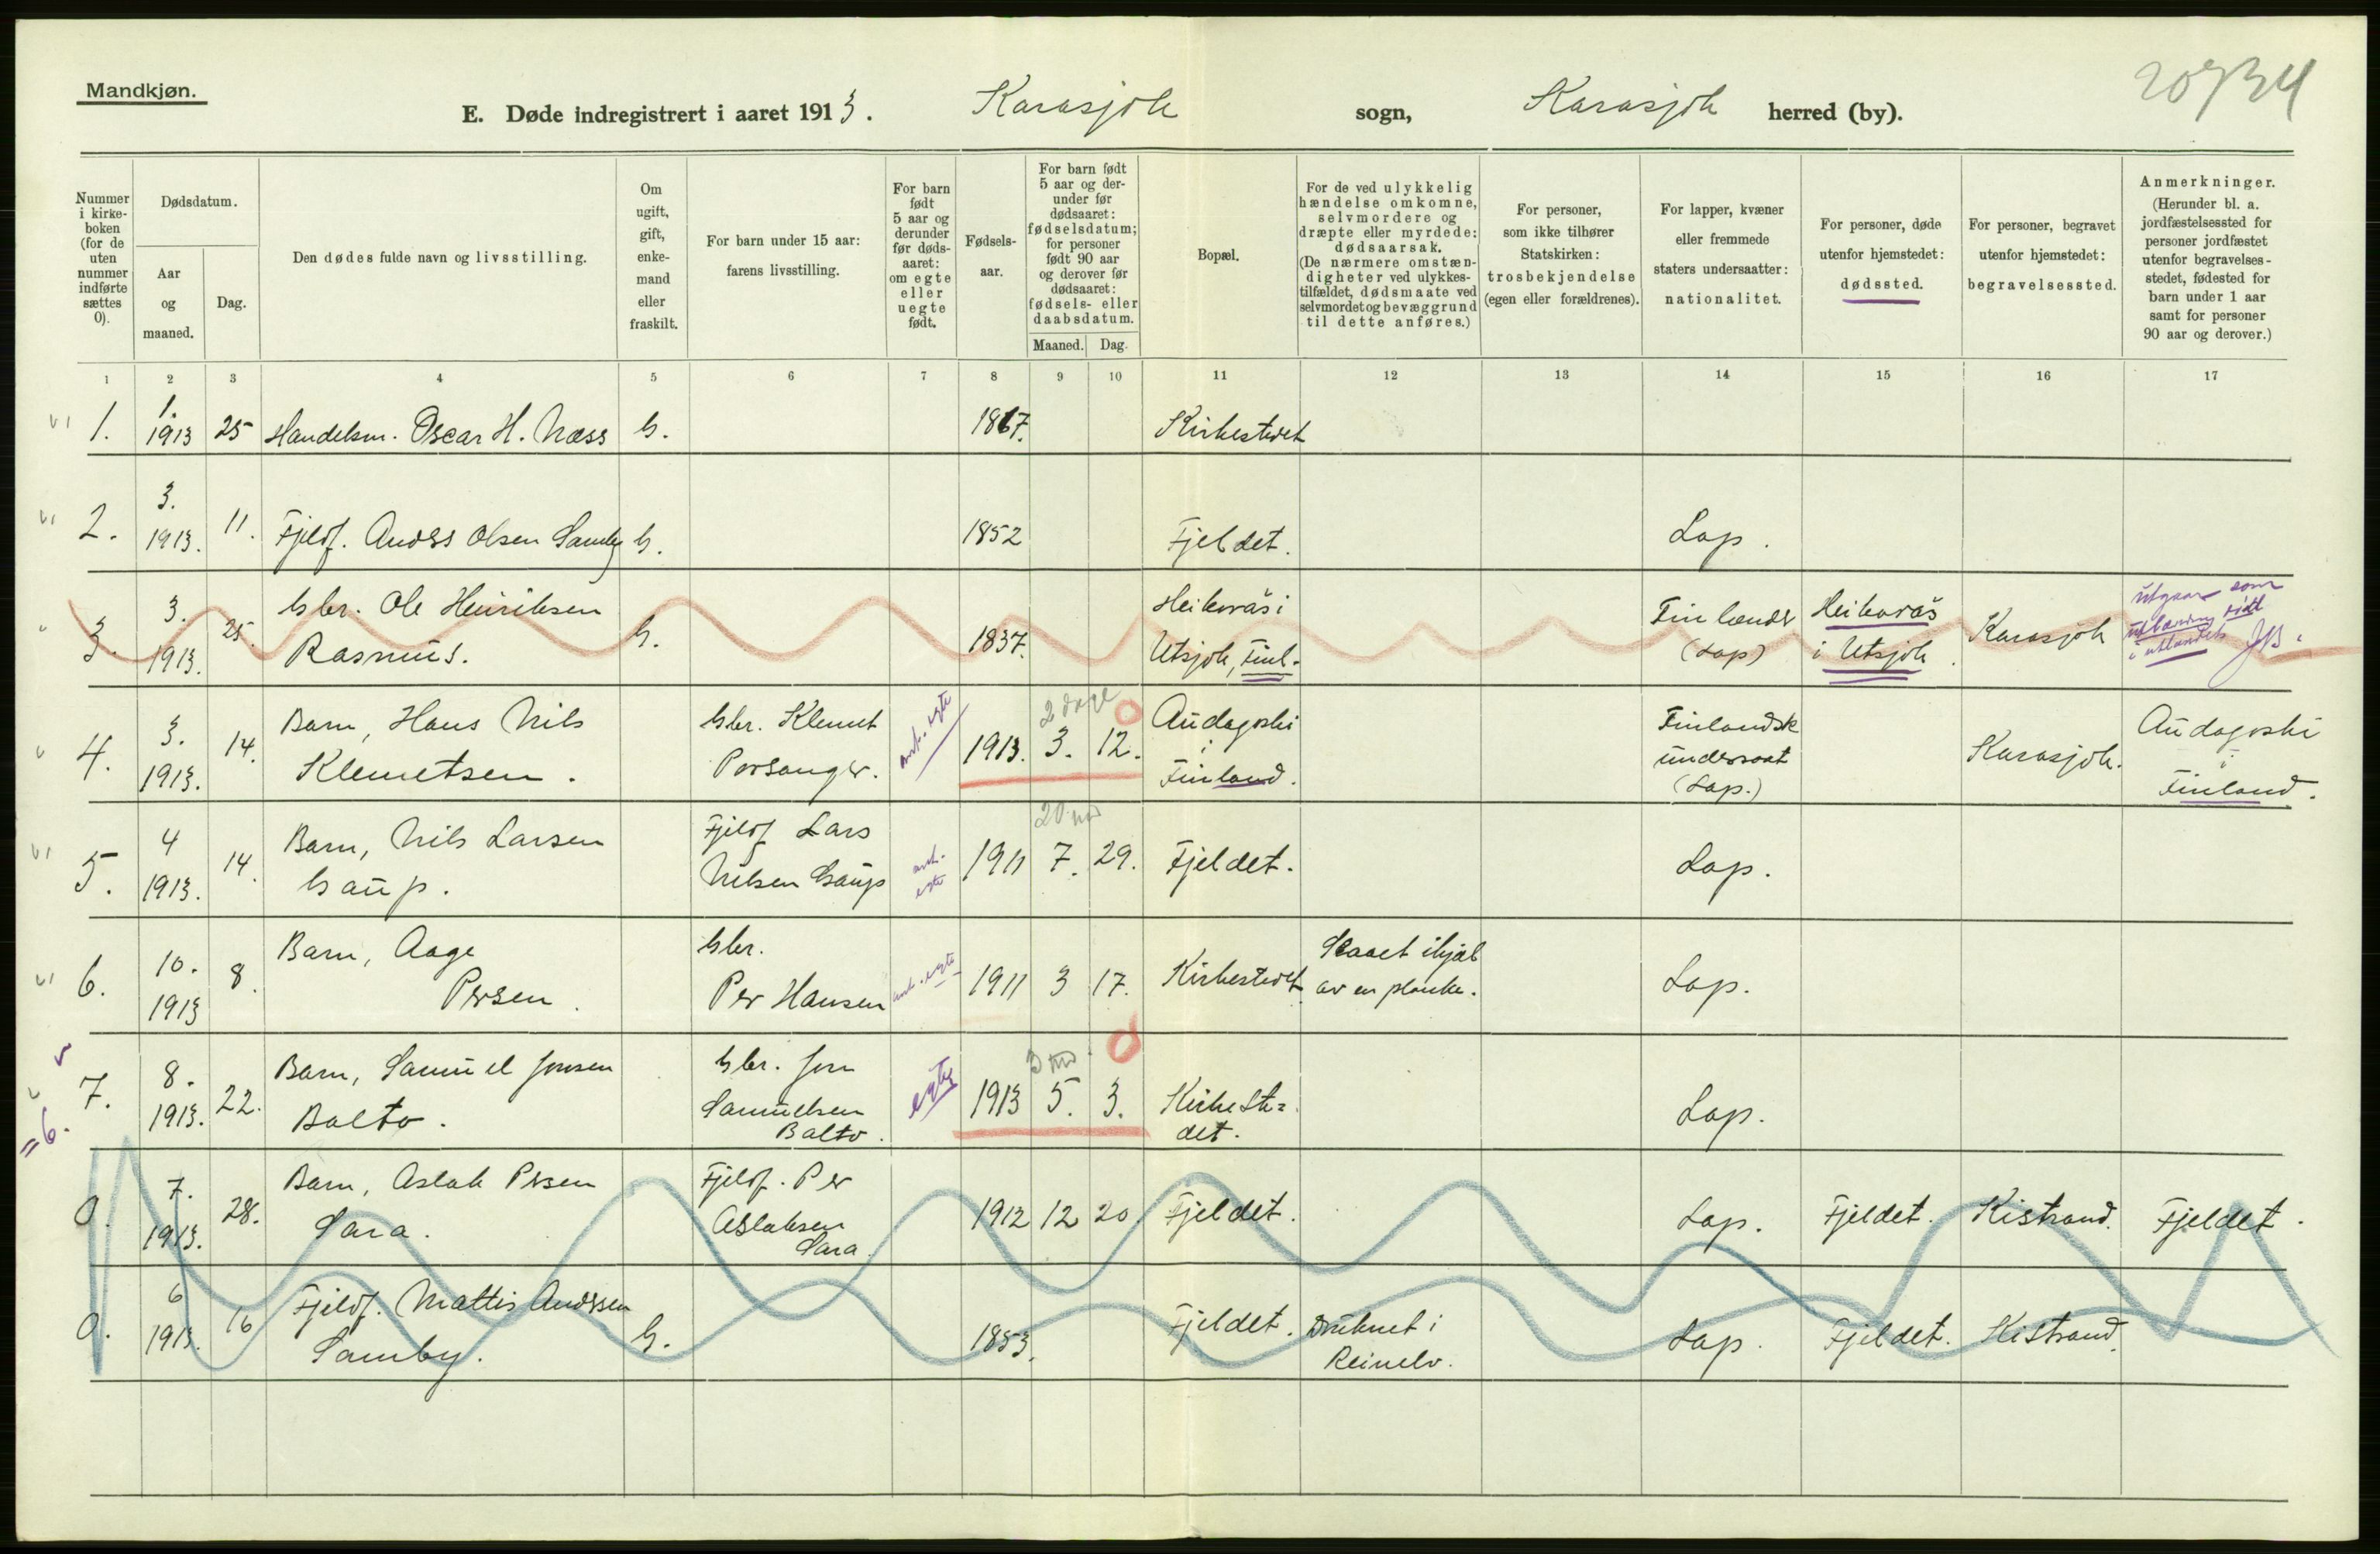 Mandkjøn.
20734
E. Døde indregistrert i aaret 1913. Karasjok sogn, Karasjok herred (by).
Nummer i kirke-boken (for de uten nummer indførte sættes 0).
Dødsdatum.
Aar og maaned.
Dag.
Den dødes fulde navn og livsstilling.
Om ugift, gift, enke-mand eller fraskilt.
For barn under 15 aar: farens livsstilling.
For barn født 5 aar og derunder før døds-aaret: om egte eller uegte født.
Fødsels-aar.
For barn født 5 aar og der-under før dødsaaret: fødselsdatum; for personer født 90 aar og derover før dødsaaret: fødsels- eller daabsdatum.
Maaned. Dag.
Bopæl.
For de ved ulykkelig hændelse omkomne, selvmordere og dræpte eller myrdede: dødsaarsak. (De nærmere omstæn-digheter ved ulykkes-tilfældet, dødsmaate ved selvmordet og bevæggrund til dette anføres.)
For personer, som ikke tilhører Statskirken: trosbekjendelse (egen eller forældrenes).
For lapper, kvæner eller fremmede staters undersaatter: nationalitet.
For personer, døde utenfor hjemstedet: dødssted.
For personer, begravet utenfor hjemstedet: begravelsessted.
Anmerkninger. (Herunder bl. a. jordfæstelsessted for personer jordfæstet utenfor begravelses-stedet, fødested for barn under 1 aar samt for personer 90 aar og derover.)
1 2 3 4 5 6 7 8 9 10 11 12 13 14 15 16 17
1. 1. 1913 25 Handelsm. Oscar H. Næss G. 1867. Kirkestedet
2. 3. 1913. 11. Fjeldf. Anders Olsen Somby G. 1852 Fjeldet. Lap.
3. 3. 1913. 25. Gbr. Ole Henriksen
Rasmus. G. 1837. Heikoväs i
Utsjok, Finl. Finlender
(Lap) Heikoväs
i Utsjok. Karasjok utgaar som
utlænding død
i utlandet JB.
4. 3. 1913. 14. Barn, Hans Nils
Klemetsen. Gbr. Klemet
Porsanger. ant. egte 1913. 3. 12. 2 dage Audagoski
i
Finland. Finlandsk
undersaat
(Lap.) Karasjok. Audagoski
i
Finland.
5. 4 1913. 14. Barn, Nils Larsen
Gaup. Fjeldf Lars
Nilsen Gaup ant. egte 1911 7. 29. 20 md Fjeldet. Lap.
6. 10. 1913 8. Barn, Aage
Persen. Gbr.
Per Hansen ant. egte 1911 3 17. Kirkestedet Slaaet ihjæl
av en planke. Lap.
7. =6. 8. 1913. 22. Barn, Samuel Jonsen
Balto. Gbr. Jon
Samuelsen
Balto. egte 1913 5. 3. 3 md. Kirkeste=
det. Lap.
0. 7. 1913. 28. Barn, Aslak Persen
Sara. Fjeldf. Per
Aslaksen
Sara. 1912 12 20. Fjeldet. Lap. Fjeldet. Kistrand. Fjeldet.
0. 6 1913. 16 Fjeldf. Mattis Anderssen
Somby. G. 1853. Fjeldet. Druknet i
Reinelv. Lap. Fjeldet. Kistrand.